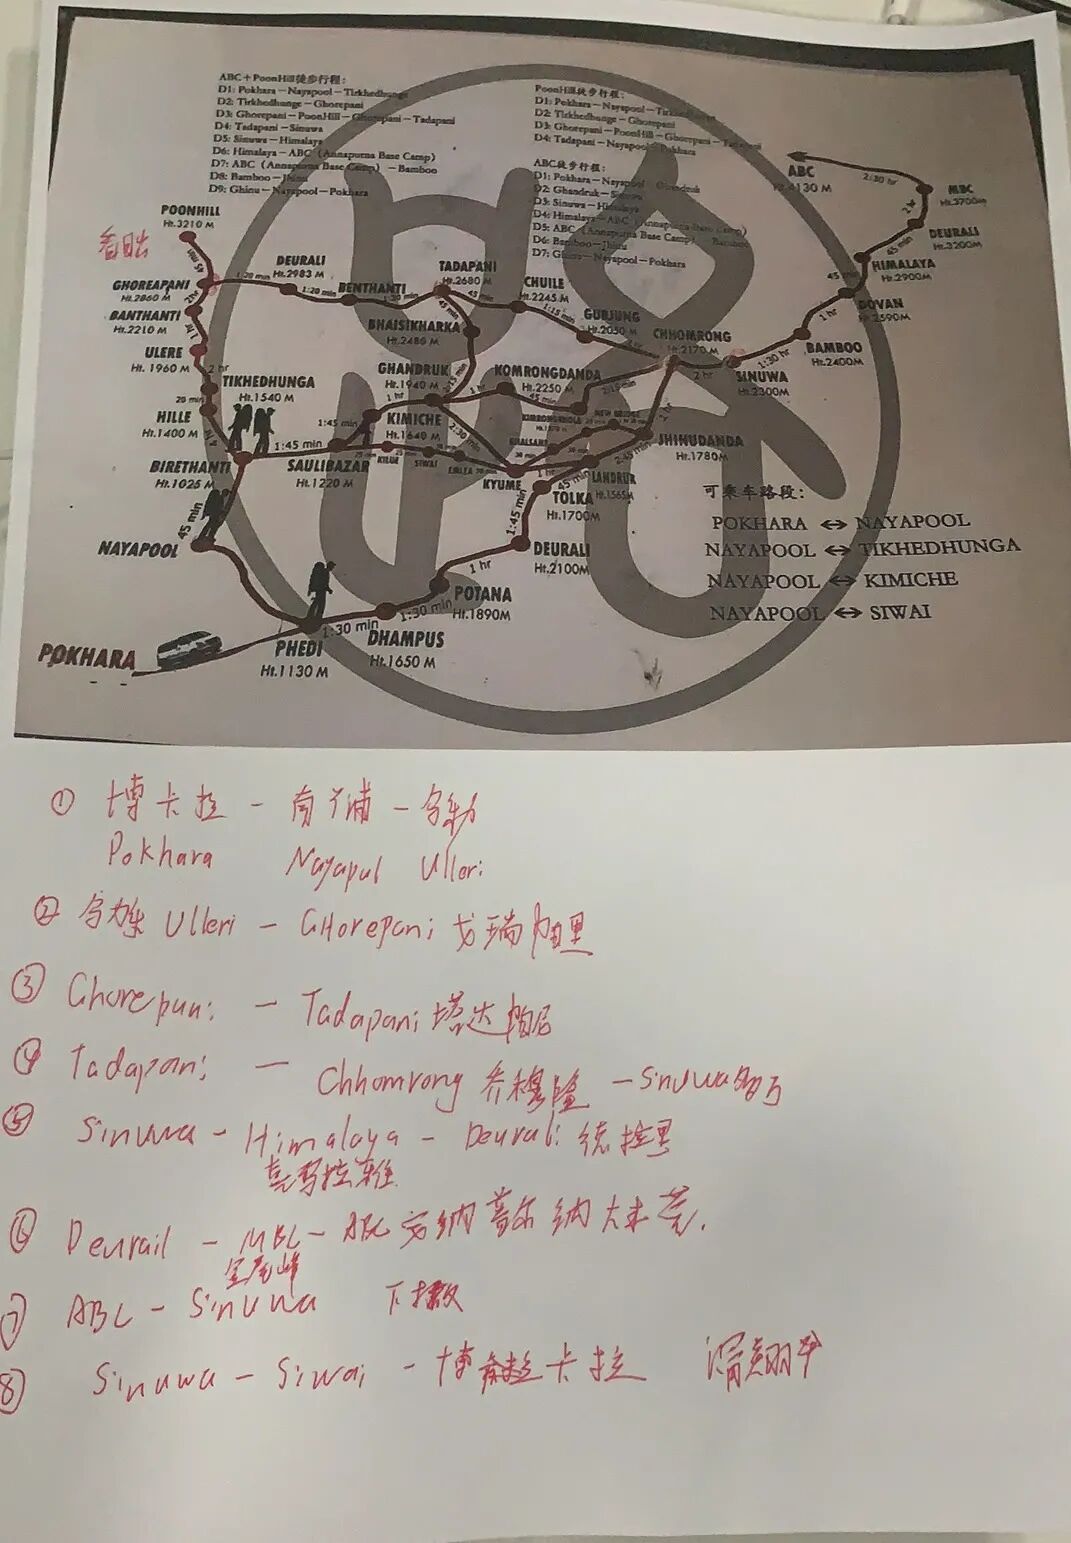 ABC+PoonHill徒步行程：
D1: Pokhara－Nayapool－Tirkhedhunge
D2: Tirkhedhunge－Ghorepani
D3: Ghorepani－PoonHill－Ghorepani－Tadapani
D4: Tadapani－Sinuwa
D5: Sinuwa－Himalaya
D6: Himalaya－ABC（Annapurna Base Camp）
D7: ABC（Annapurna Base Camp）－Bamboo
D8: Bamboo－Jhinu
D9: Ghinu－Nayapool－Pokhara
PoonHill徒步行程：
D1: Pokhara－Nayapool－
D2: Tirkhedhunge－Ghorepani
D3: Ghorepani－PoonHill－Ghorepani－Tadapani
D4: Tadapani－Nayapool－Pokhara
ABC徒步行程：
D1: Pokhara－Nayapool－Ghandruk
D2: Ghandruk－Sinuwa
D3: Sinuwa－Himalaya
D4: Himalaya－ABC（Annapurna Base Camp）
D5: ABC（Annapurna Base Camp）－Bamboo
D6: Bamboo－Jhinu
D7: Ghinu－Nayapool－Pokhara
ABC
4130 M
2:30 hr
MBC
Ht.3700M
2 hr
DEURALI
Ht.3200M
45 min
HIMALAYA
Ht.2900M
45 min
DOVAN
Ht.2590M
1 hr
BAMBOO
Ht.2400M
1:30 hr
SINUWA
Ht.2300M
2 hr
CHHOMRONG
Ht.2170M
POONHILL
Ht.3210 M
看日出
45 min
GHOREAPANI
Ht.2860 M
1:20 min
DEURALI
Ht.2983 M
1:20 min
BENTHANTI
1:30 min
TADAPANI
Ht.2680 M
45 min
CHUILE
Ht.2245 M
1:15 min
GURJUNG
Ht.2050 M
2 hr
BANTHANTI
Ht.2210 M
ULERE
Ht. 1960 M
2 hr
TIKHEDHUNGA
Ht.1540 M
20 min
HILLE
Ht.1400 M
BHAISIKHARKA
Ht.2480 M
45 min
2:15 min
GHANDRUK
Ht.1940 M
1 hr
KOMRONGDANDA
Ht.2250 M
45 min
2:15 min
KIMICHE
Ht.1640 M
1 hr
1:45 min
2:30 min
NEW BRIDGE
BIRETHANTI
Ht.1025 M
1:45 min
SAULIBAZAR
Ht.1220 M
SIWAI
KYUME
1 hr
JHINUDANDA
Ht.1780M
2:45 min
LANDRUK
Ht.1565M
45 min
TOLKA
Ht.1700M
1:45 min
DEURALI
Ht.2100M
1 hr
POTANA
Ht.1890M
1:30 min
DHAMPUS
Ht.1650 M
1:30 min
PHEDI
Ht.1130 M
45 min
NAYAPOOL
POKHARA
可乘车路段：
POKHARA ⇔ NAYAPOOL
NAYAPOOL ⇔ TIKHEDHUNGA
NAYAPOOL ⇔ KIMICHE
NAYAPOOL ⇔ SIWAI
① 博卡拉 - 南亚浦 - 乌勒
Pokhara Nayapul Ulleri
② 乌勒 Ulleri - GHorepani 戈瑞帕里
③ Ghorepani - Tadapani 塔达帕尼
④ Tadapani - Chhomrong 乔穆隆 - Sinuwa
⑤ Sinuwa - Himalaya - Deurali 德拉里
喜马拉雅
⑥ Deurail - MBC - ABC 安纳普尔纳大本营.
鱼尾峰
⑦ ABC - Sinuwa 下撤
⑧ Sinuwa - Siwai - 博卡拉 滑翔伞